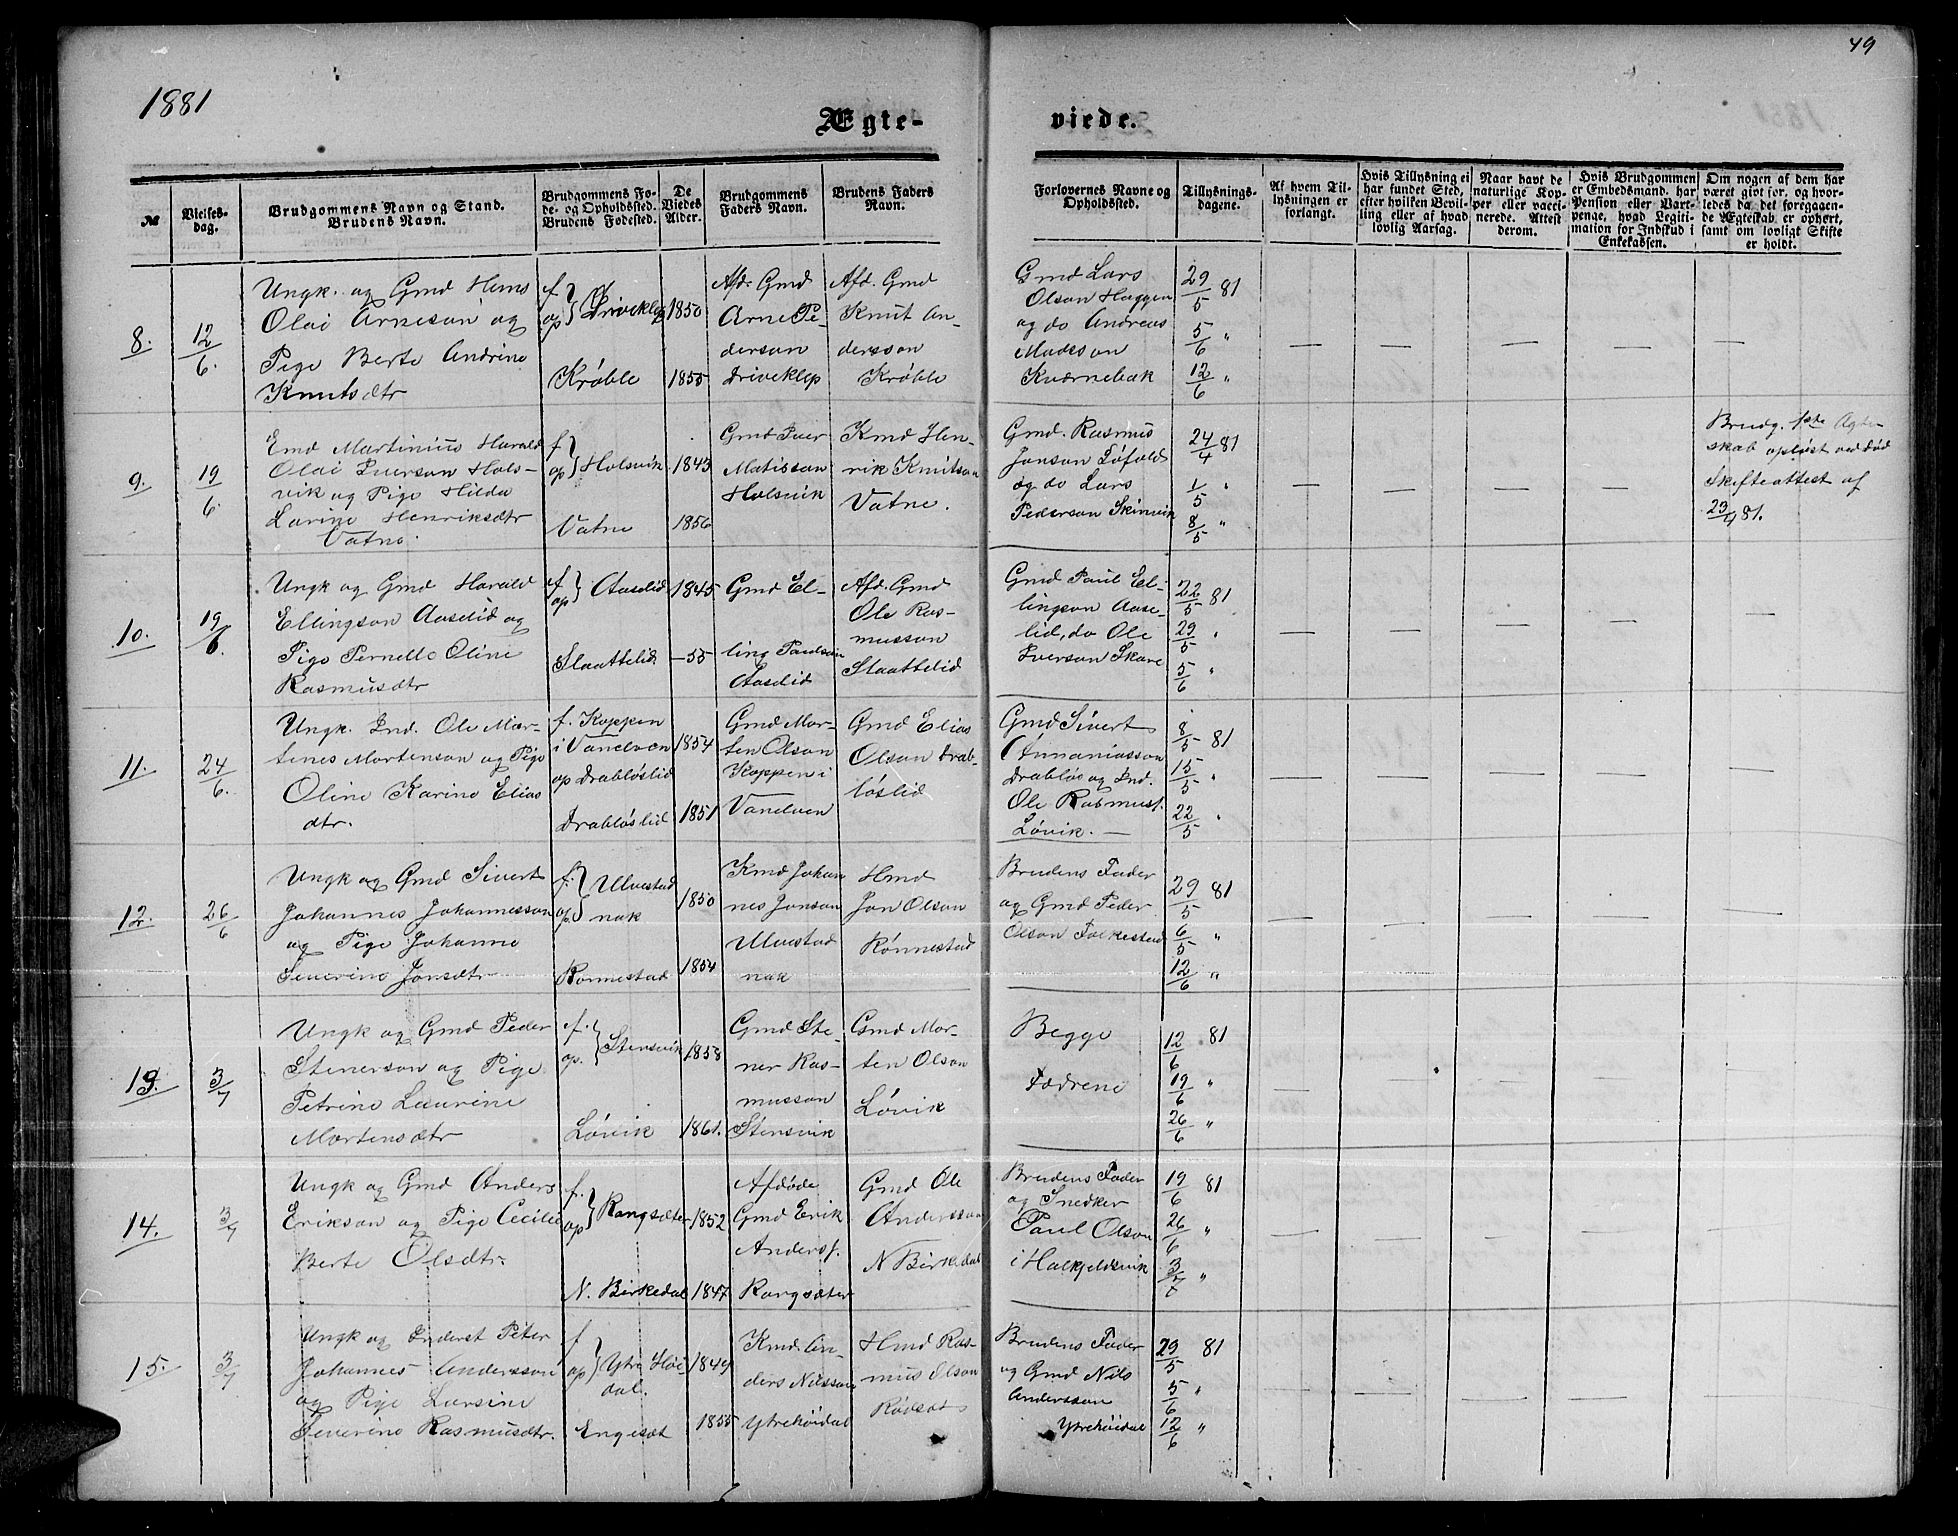 49
1881
Ægte-
viede.
№
Vielses-
dag.
Brudgommens Navn og Stand.
Brudens Navn.
Brudgommens Fø-
de- og Opholdssted.
Brudens Fødested.
De
Viedes
Alder.
Brudgommens
Faders Navn.
Brudens Faders
Navn.
Forlovernes Navne og
Opholdssted.
Tillysnings-
dagene.
Af hvem Til-
lysningen er
forlangt.
Hvis Tillysning ei
har fundet Sted,
efter hvilken Bevil-
ling eller af hvad
lovlig Aarsag.
Naar havt de
naturlige Kop-
per eller vacci-
nerede. Attest
derom.
Hvis Brudgommen
er Embedsmand, har
Pension eller Vart-
penge, hvad Legiti-
mation for Indskud i
Enkekassen.
Om nogen af dem har
været gift før, og hvor-
ledes da det foregaaen-
de Ægteskab er ophørt,
samt om lovligt Skifte
er holdt.
8.
12/6.
Ungk. og Gmd Hans
Olai Arneson og
Pige Berte Andrine
Knutsdtr
f
op } Driveklep
Krøble
1850
1855
Afd. Gmd
Arne Pe-
derson
Driveklep
Afd. Gmd
Knut An-
dersson
Krøble
Gmd Lars
Olson Haggen
og do Andreas
Madsson
Kværnebak
29/5 81
5/6 "
12/6 "
— — — — —
9.
19/6.
Emd Martinius Harald
Olai Iverson Hols-
vik og Pige Hilda
Larine Henriksdtr
Vatne.
f
op } Holsvik
Vatne
1843
1856
Gmd Iver
Matisson
Holsvik
Kmd Hen-
rik Knutson
Vatne.
Gmd. Rasmus
Jonson Løfold
og do Lars
Pederson Skinvik
24/4 81
1/5 "
8/5 "
— — — —
Brudg. 1ste Ægte-
skab opløst ved død
Skifteattest af
23/4 81.
10.
19/6.
Ungk og Gmd Harald
Ellingson Aaselid og
Pige Pernelle Oline
Rasmusdtr
f
op } Aaselid
Slaattelid
1845
—55
Gmd El-
ling Paulson
Aaselid
Afd. Gmd
Ole Ras-
musson
Slaattelid
Gmd Paul El-
lingson Aase-
lid, do Ole
Iverson Skare
22/5 81
29/5 "
5/6 "
— — — — —
11.
24/6.
Ungk. Ind. Ole Mar-
tines Mortenson og Pige
Oline Karine Elias
dtr.
f. Koppen
i Vanelven
op Drabløslid
Drabløslid
1854
1851
Gmd Mor-
ten Olson
Koppen i
Vanelven
Gmd Elias
Olson Drab-
løslid
Gmd Sivert
Annaniasson
Drabløs og Ind.
Ole Rasmusf.
Løvik. —
8/5 81
15/5 "
22/5 "
— — — — —
12.
26/6
Ungk og Gmd Sivert
Johannes Johannesson
og Pige Johanne
Severine Jonsdtr
f.
op. } Ulvestad
nak
Rønnestad
1850
1854
Kmd Johan
nes Jonson
Ulvestad
nak
Hmd
Jon Olson
Rønnestad
Brudens Fader
og Gmd Peder
Olson Folkestad
29/5 81
6/5 "
12/6 "
— — — — —
13.
3/7
Ungk og Gmd Peder
Stenerson og Pige
Petrine Laurine
Mortensdtr
f.
op. } Stensvik
Løvik
1858
1861.
Gmd Ste-
ner Ras-
musson
Stensvik
Gmd Mor-
ten Olson
Løvik
Begge
Fædrene
12/6 81
19/6 "
26/6 "
— — — — —
14.
3/7
Ungk og Gmd Anders
Erikson og Pige Cecilie
Berte Olsdtr.
f.
op } Rangsæter
N. Birkedal
1852
1847
Afdøde
Gmd Erik
Andersf.
Rangsæter
Gmd Ole
Andersson
N Birkedal
Brudens Fader
og Snedker
Paul Olson
i Halkjeldsvik
19/6 81
26/6 "
3/7 "
— — — — —
15.
3/7
Ungk og Inderst Peter
Johannes Andersson
og Pige Larsine
Severine Rasmusdtr.
f
op } Ytre Høi-
dal.
Engeset
1849
1855
Kmd. An-
ders Nilsson
Ytrehøidal
Hmd Ras-
mus Olson
Rødset
Brudens Fader
og Gmd Nils
Andersson
Ytrehøidal
29/5 81
5/6 "
12/6 "
— — — — —